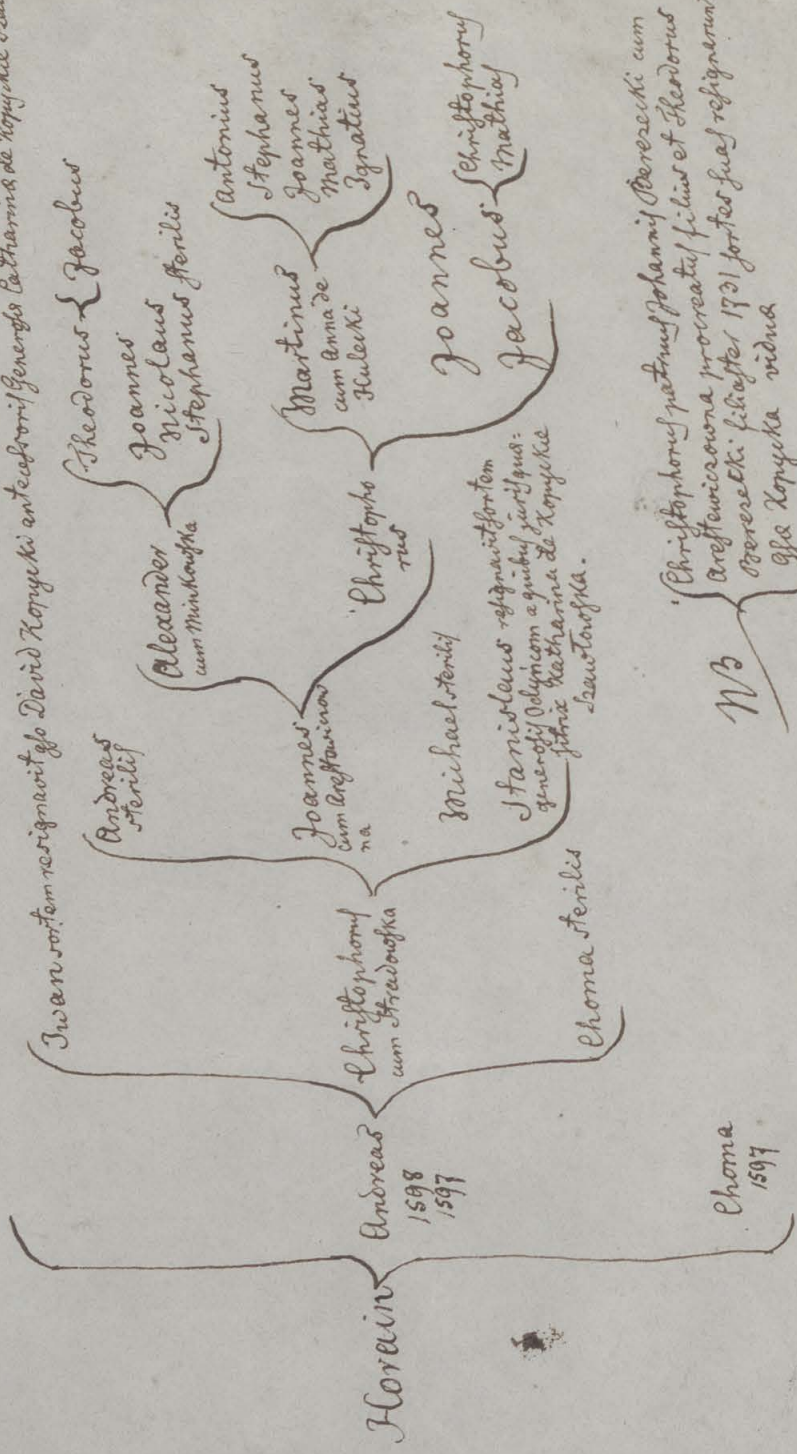 Horain
Andreas
1598
1597
Choma
1597
Iwan sortem resignavit gso David Kopycki antecessoris Generosa Catharina de Kopyckie
Christophorus
cum Stradowska
Choma sterilis
Andreas
sterilis
Joannes
cum Arestowiczow
na
Michael sterilis
Stanislaus resignavit sortem
generosis Odyńcom a quibus juris quæ=
sitrix Katharina de Kopyckie
Szawłowska.
Alexander
cum Minkowska
Christopho
rus
Theodorus
Joannes
Nicolaus
Stephanus sterilis
Jacobus
Martinus
cum Anna de
Hulecki
Joannes
Jacobus
Antonius
Stephanus
Joannes
Mathias
Ignatius
Christophorus
Mathias
NB
Christophorus patruus Johannis Berezecki cum
Arestewiczowna procreatus filius et Theodorus
Berezecki filiaster 1731 sortes suas resignarunt
gsa Kopycka vidua